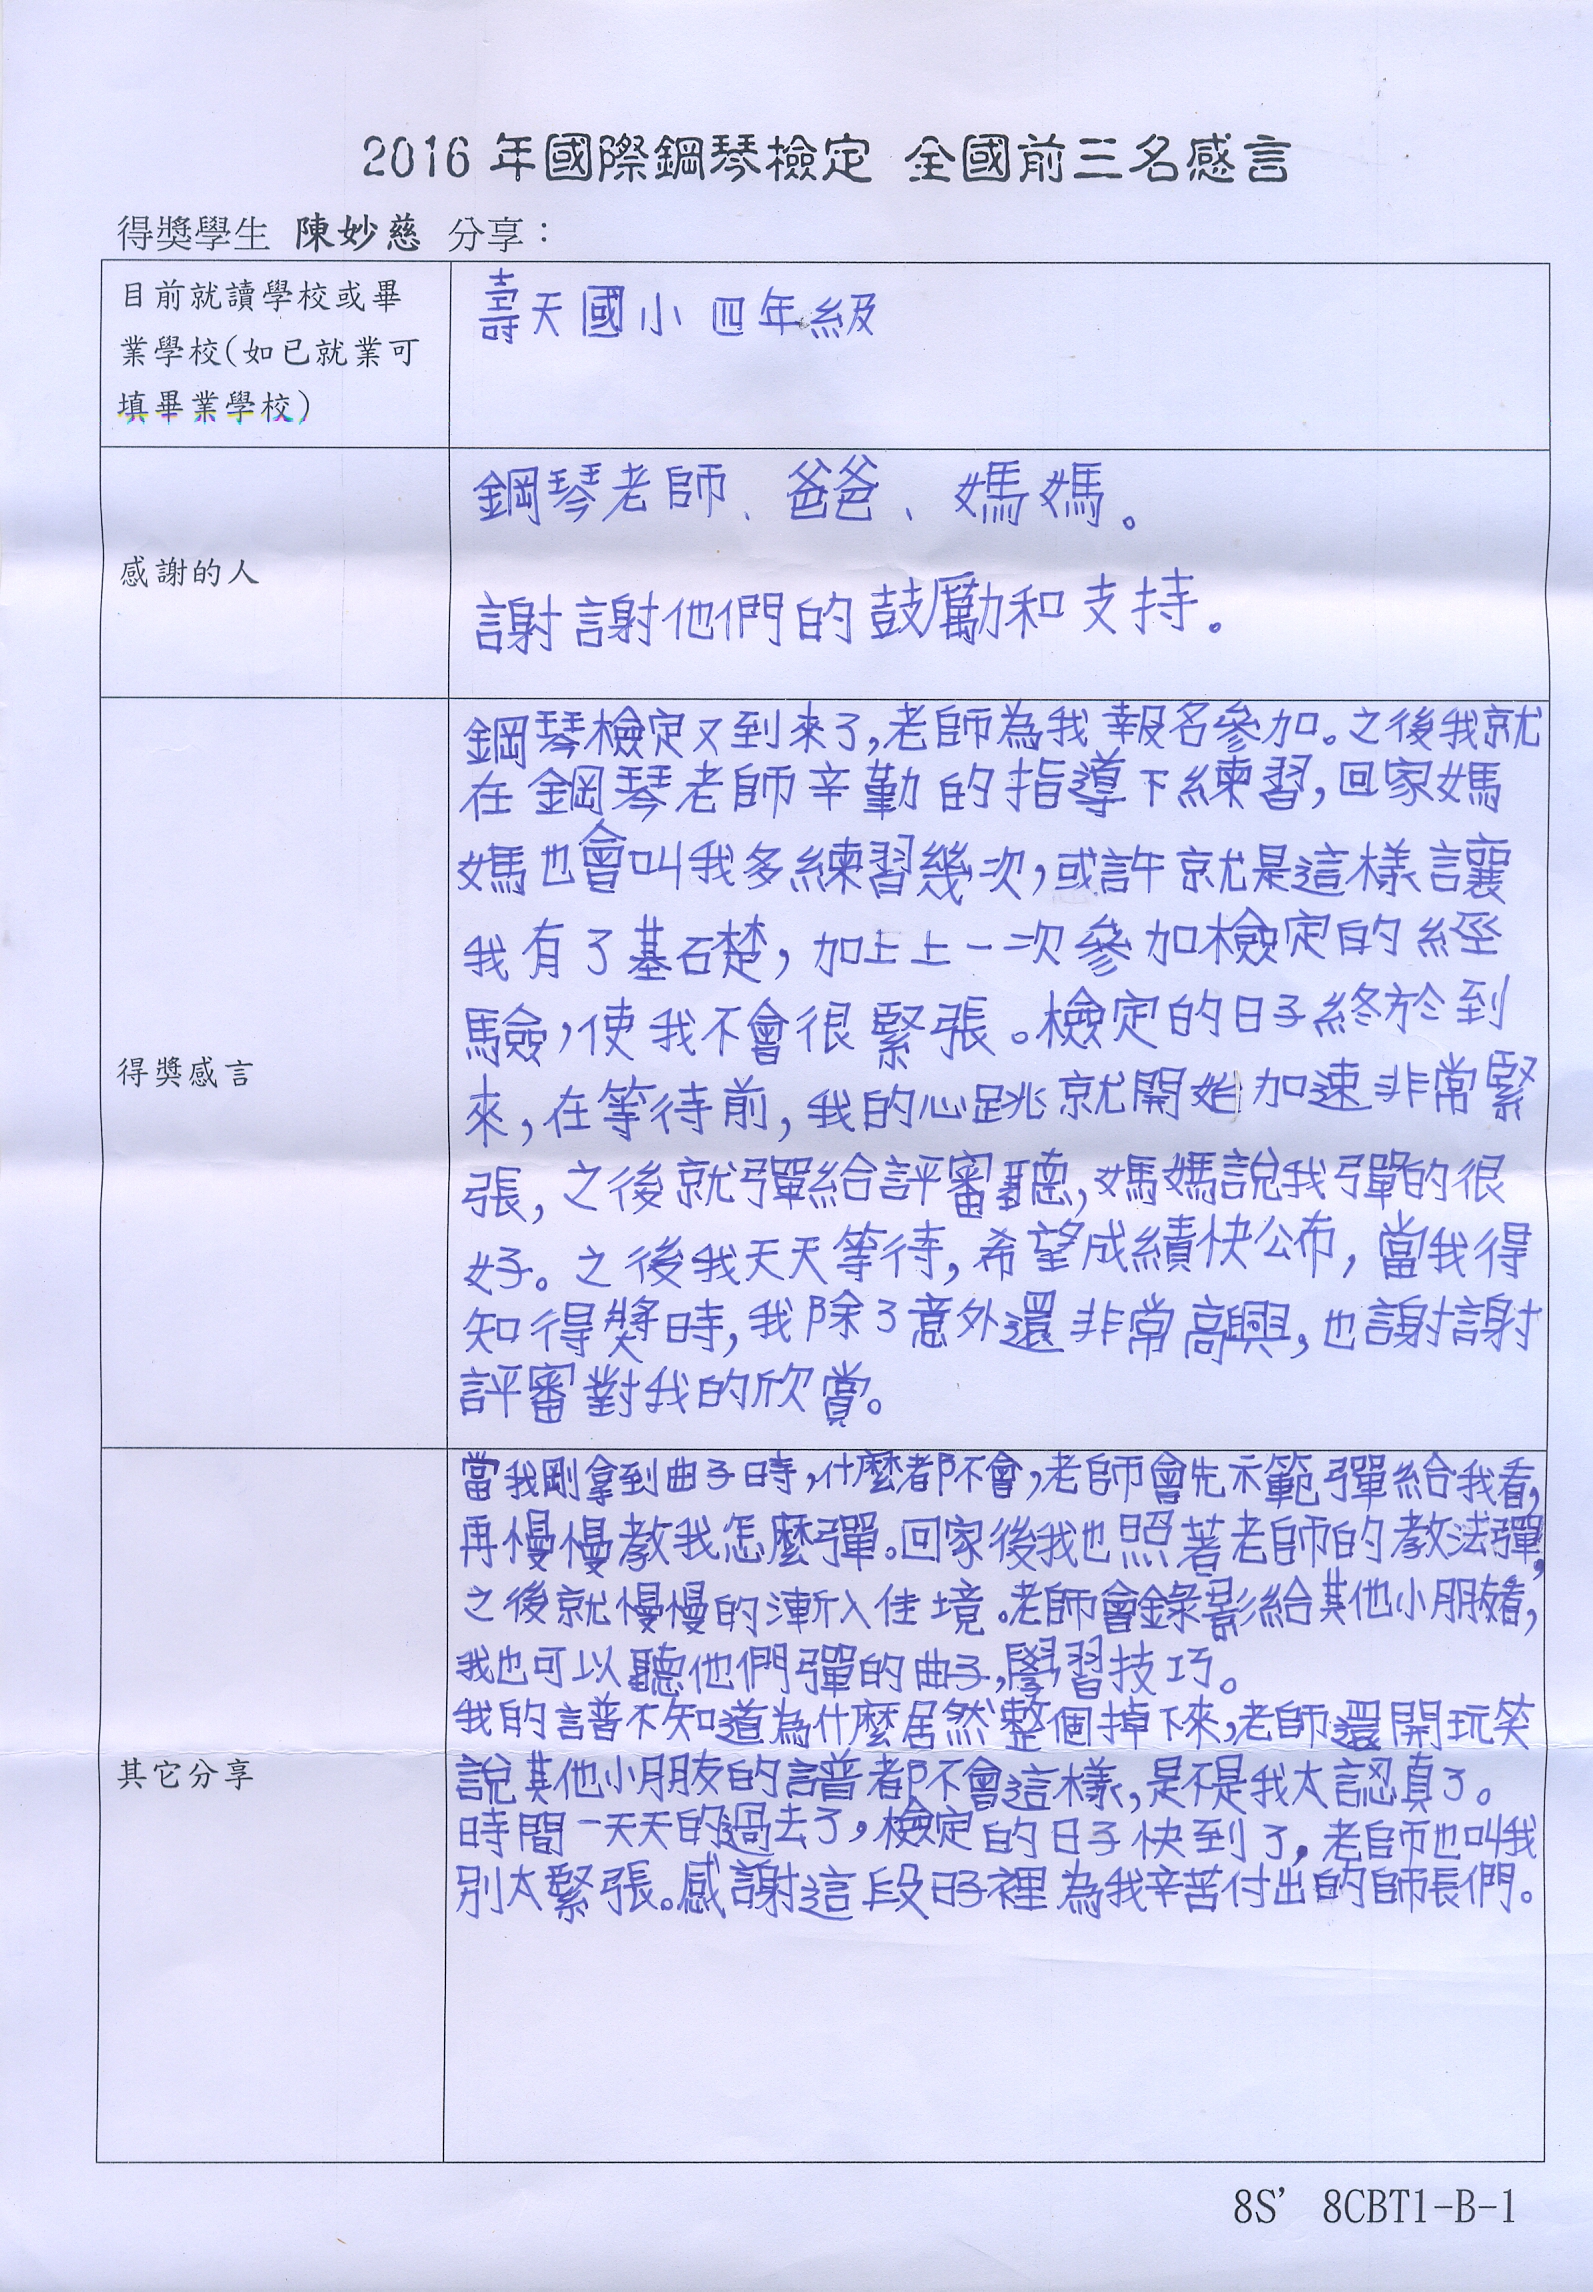 2016 年國際鋼琴檢定 全國前三名感言
得獎學生 陳妙慈 分享：
目前就讀學校或畢
業學校(如已就業可
填畢業學校)
壽天國小四年級
感謝的人
鋼琴老師、爸爸、媽媽。
謝謝他們的鼓勵和支持。
得獎感言
鋼琴檢定又到來了,老師為我報名參加。之後我就
在鋼琴老師辛勤的指導下練習,回家媽
媽也會叫我多練習幾次,或許就是這樣讓
我有了基礎,加上上一次參加檢定的經
驗,使我不會很緊張。檢定的日子終於到
來,在等待前,我的心跳就開始加速非常緊
張,之後就彈給評審聽,媽媽說我彈的很
好。之後我天天等待,希望成績快公布,當我得
知得獎時,我除了意外還非常高興,也謝謝
評審對我的欣賞。
其它分享
當我剛拿到曲子時,什麼都不會,老師會先示範彈給我看,
再慢慢教我怎麼彈。回家後我也照著老師的教法彈,
之後就慢慢的漸入佳境。老師會錄影給其他小朋友看,
我也可以聽他們彈的曲子,學習技巧。
我的譜不知道為什麼居然整個掉下來,老師還開玩笑
說其他小朋友的譜都不會這樣,是不是我太認真了。
時間一天天的過去了,檢定的日子快到了,老師也叫我
別太緊張。感謝這段日子裡為我辛苦付出的師長們。
8S’ 8CBT1-B-1